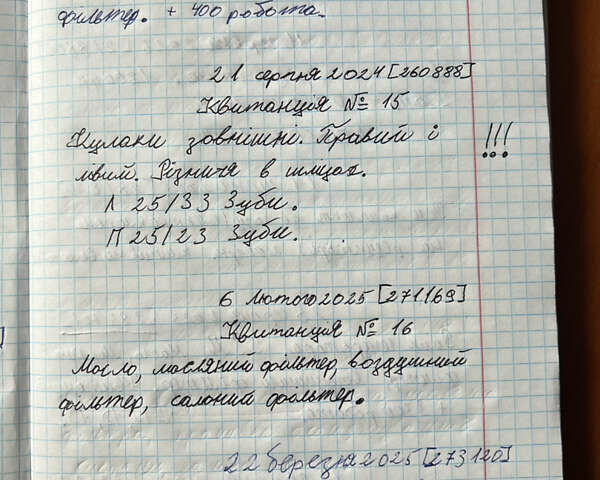 фільтер. + 400 робота.
21 серпня 2024 [260888]
Квитанція № 15
Кулаки зовнішні. Правий і !!!
лівий. Різниця в шліцах.
Л 25/33 Зуби.
П 25/23 Зуби.
6 лютого 2025 [271169]
Квитанція № 16
Масло, масляний фільтер, воздушний
фільтер, салоний фільтер.
22 березня 2025 [273120]